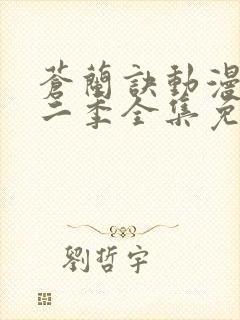 蒼蘭訣動漫
二季全集免
劉哲宇